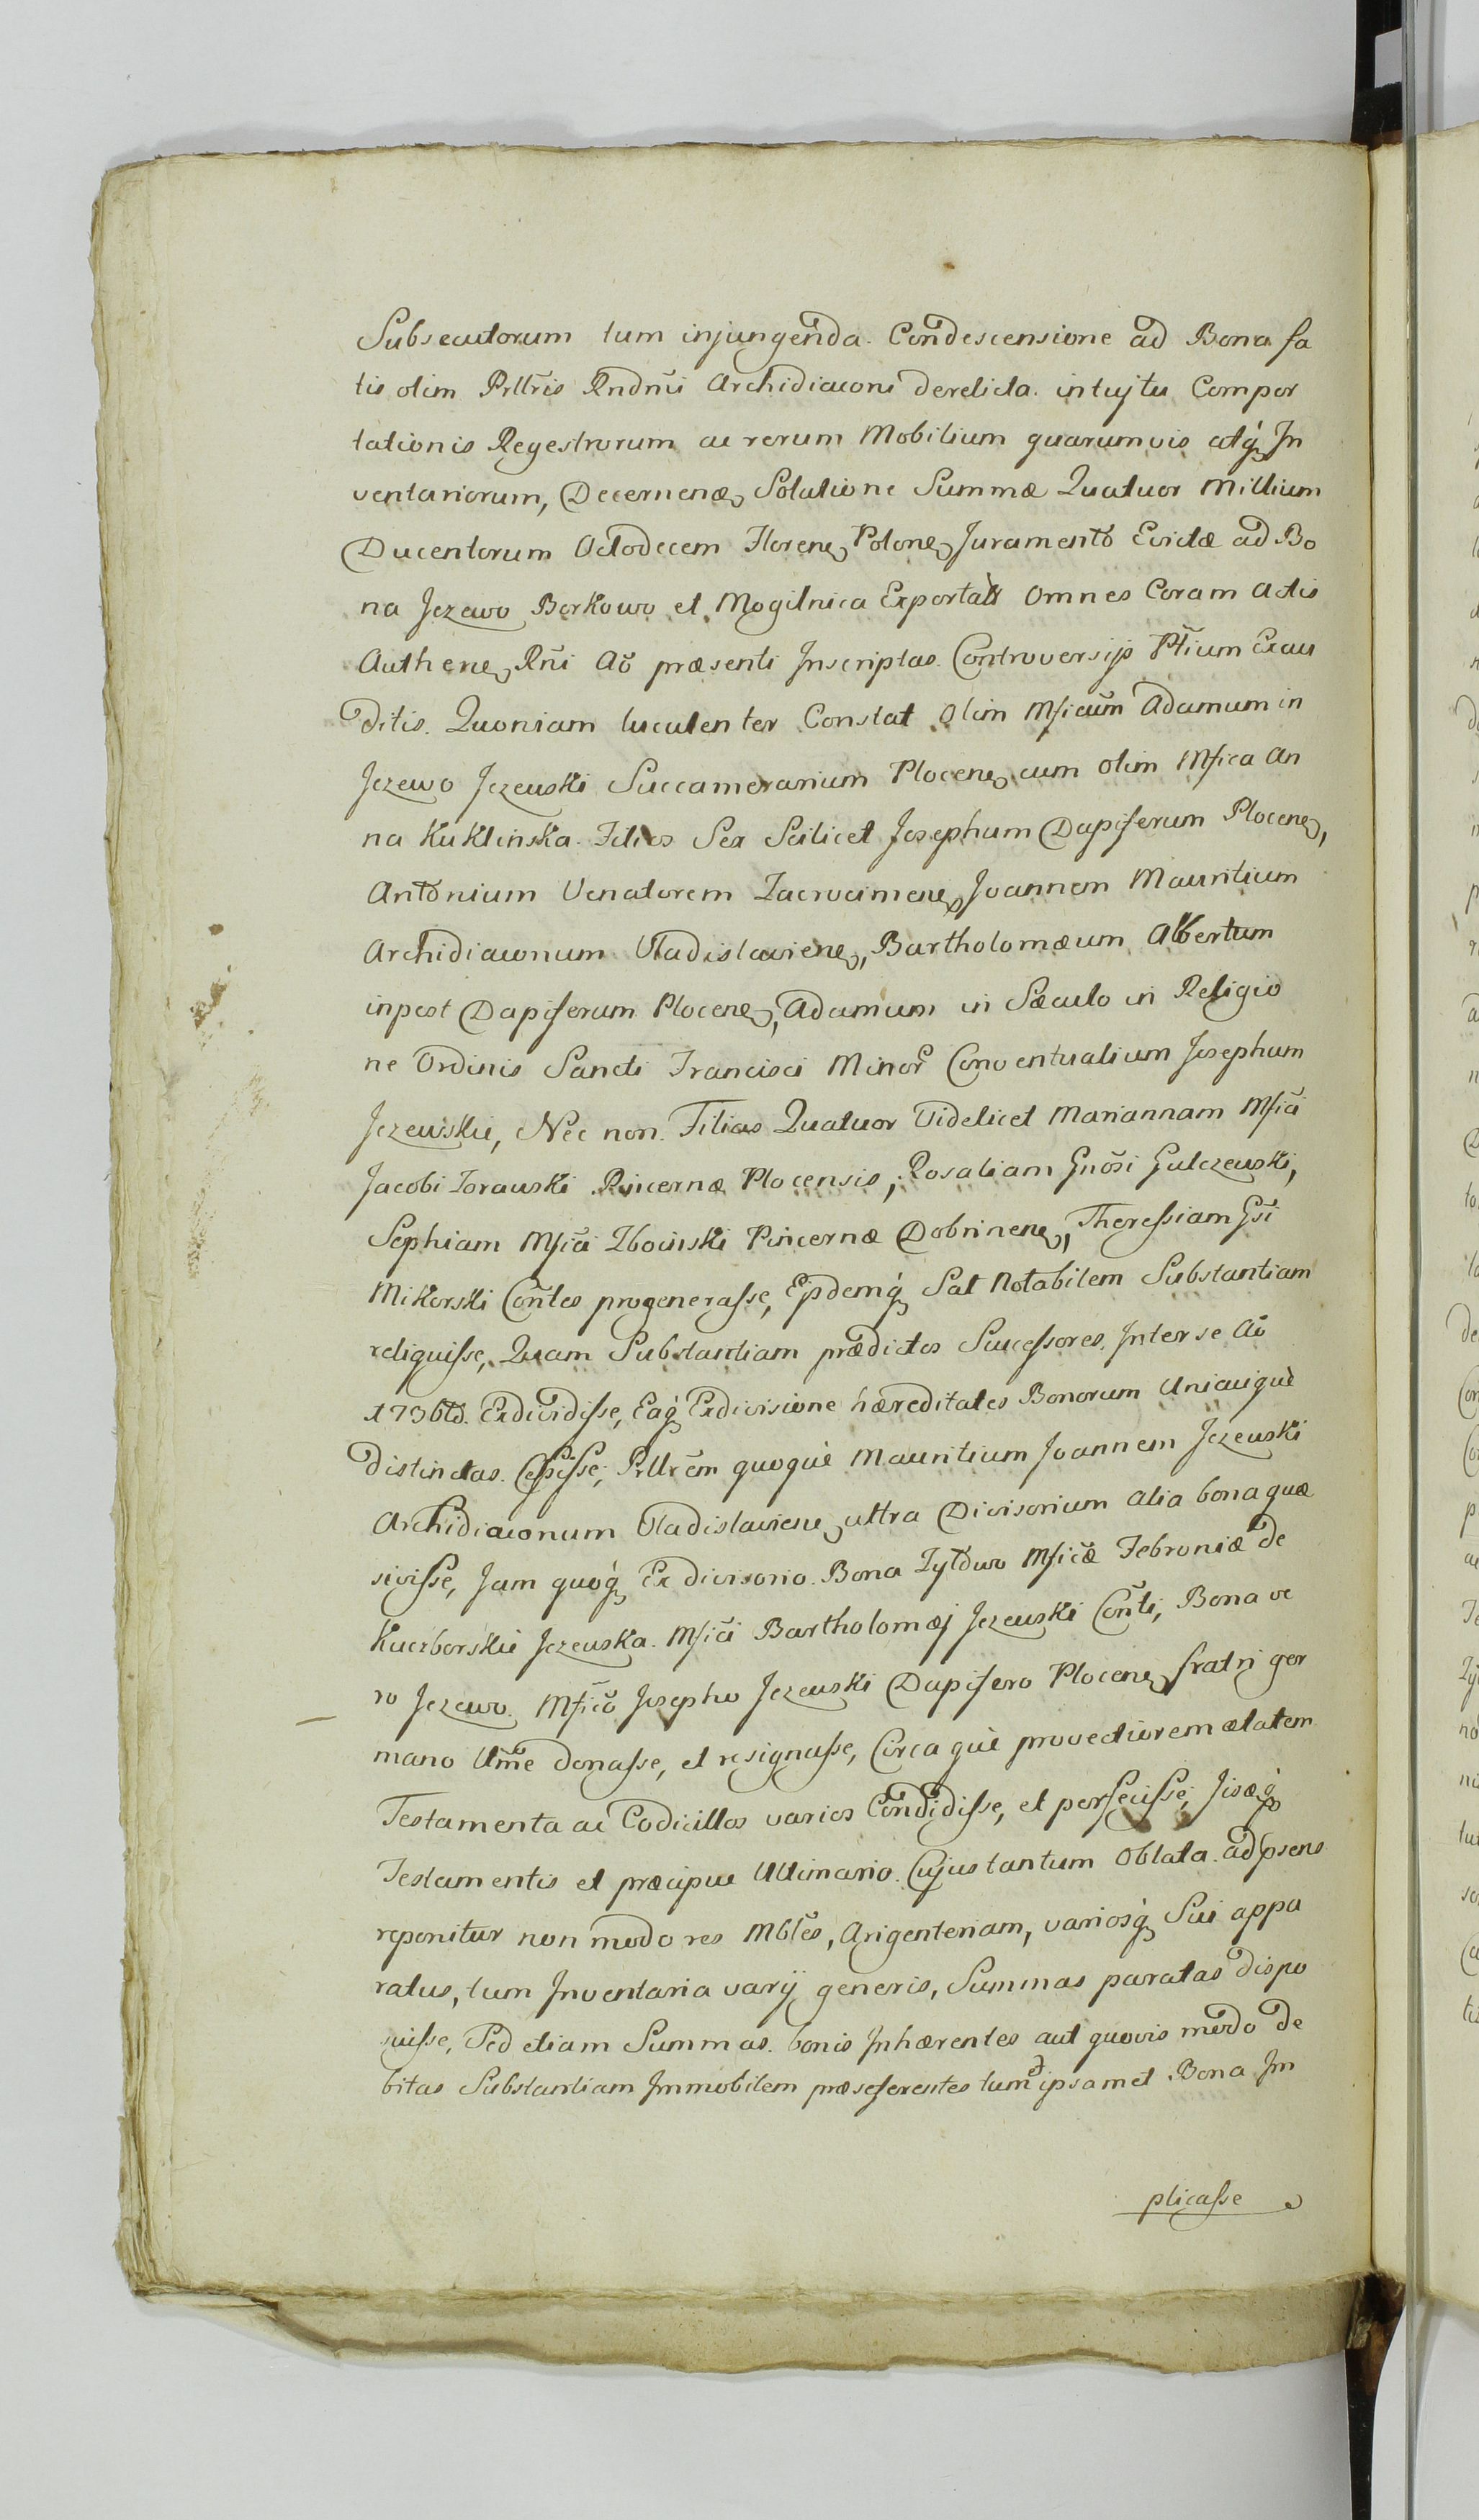 Subsecutorum tum injungenda. Condescensione ad Bona fa
tis olim Prllris Rndmi Archidiaconi derelicta. intujtu Compor
tationis Regestrorum ac rerum Mobilium quarumvis atq́ In
ventariorum, Decernenę Solutione Summæ Quatuor Millium
Ducentorum Octodecem Florenę Polonę Juramento Evictæ ad Bo
na Jezewo Borkowo et Mogilnica Exportatt Omnes Coram Actis
Authenę Rñi Aõ præsenti Inscriptas. Controversijs Ptium Exau
ditis. Quoniam luculenter Constat Olim Mficum Adamum in
Jezewo Jezewski Succamerarium Plocenę cum olim Mfica An
na Kuklinska. Filios Sex Scilicet Josephum Dapiferum Plocenę,
Antonium Venatorem Zacrocimenę Joannem Mauritium
Archidiaconum Vladislavienę, Bartholomæum Albertum
inpost Dapiferum Plocenę, Adamum in Sæculo in Religio
ne Ordinis Sancti Francisci Minor Conventualium Josephum
Jezewskie, Nec non. Filias Quatuor Videlicet Mariannam Mfici
Jacobi Zorawski Pincernæ Plocensis, Rosaliam Gnõsi Gulczewski,
Sophiam Mfici Zboinski Pincernæ Dobrinenę, Theressiam Gsi
Mikorski Contes progenerasse, Ejsdemq́ Sat Notabilem Substantiam
reliquisse, Quam Substantiam prædictos Successores. Inter se Aõ
1736to. Exdividisse, Eaq́ Exdivisione hæreditates Bonorum Unicuiquè
distinctas. Cessisse; Prllrem quoquè Mauritium Joannem Jezewski
Archidiaconum Vladislavienę ultra Divisorium alia bona quæ
sivisse, Jam quoq́ Ex divisorio. Bona Zytowo Mficæ Febroniæ de
Kuczborskie Jezewska. Mfici Bartholomæj Jezewski Conti, Bona ve
ro Jezewo. Mfico Josepho Jezewski Dapifero Plocenę fratri ger
mano Ume donasse, et resignasse, Circa què provectiorem ætatem
Testamenta ac Codicillos varios Condidisse, et perfecisse,
Testamentis et præcipue Ultimario. Cujus tantum Oblata. ad psens
reponitur non modo res Mbles, Argenteriam, variosq́ Sui appa
ratus, tum Inventaria varij generis, Summas paratas dispo
suisse, Sed etiam Summas. bonis Inhærentes aut quovis modo de
bitas Substantiam Immobilem præseferentes tum ipsamet Bona Im
plicasse